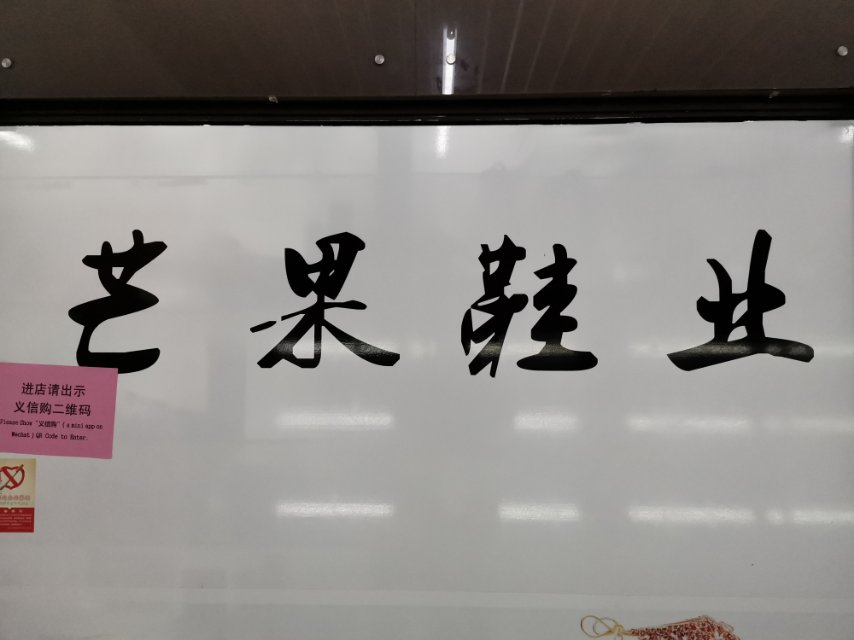 芒果鞋业
进店请出示
义信购二维码
Please Show "义信购" ( a mini app on
Wechat ) QR Code to Enter.